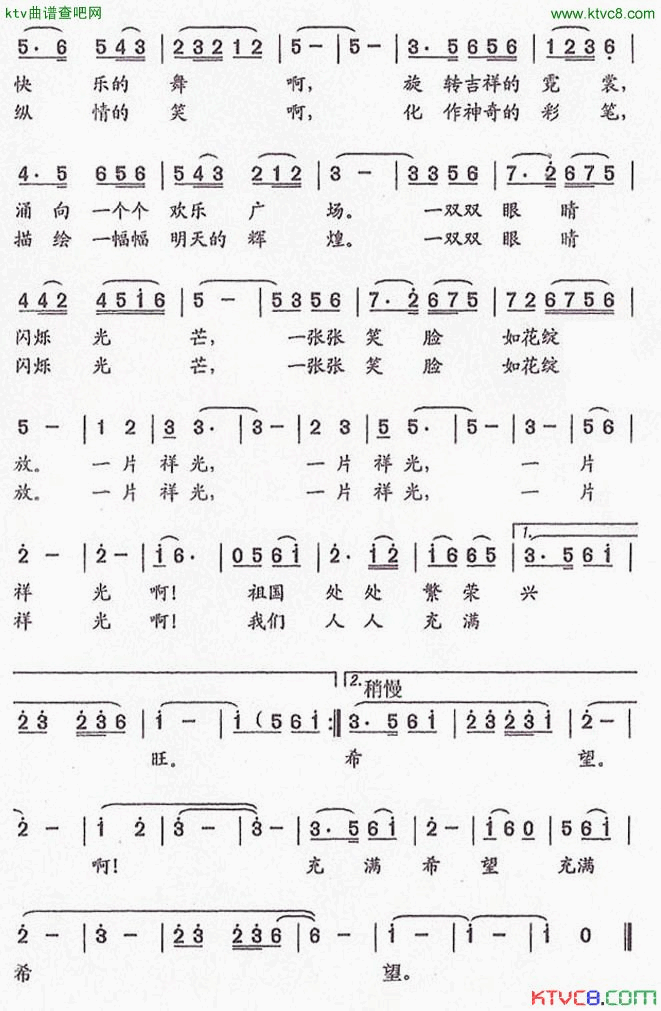 ktv曲谱查吧网 www.ktvc8.com
5·6 543 | 23212 | 5 - | 5 - | 3·5656 | 1236 |
快 乐的 舞 啊, 旋 转吉祥的 霓 裳,
纵 情的 笑 啊, 化 作神奇的 彩 笔,
4·5 656 | 543 212 | 3 - | 3356 | 7·2675 |
涌向 一个个 欢乐 广 场。 一双双 眼 睛
描绘 一幅幅 明天的 辉 煌。 一双双 眼 睛
442 4516 | 5 - | 5356 | 7·2675 | 726756 |
闪烁 光 芒, 一张张 笑 脸 如花绽
闪烁 光 芒, 一张张 笑 脸 如花绽
5 - | 1 2 | 3 3· | 3 - | 2 3 | 5 5· | 5 - | 3 - | 56 |
放。 一片 祥光, 一片 祥光, 一 片
放。 一片 祥光, 一片 祥光, 一 片
2 - | 2 - | 16· | 0561 | 2·12 | 1665 | 1. 3·561 |
祥 光 啊! 祖国 处处 繁荣 兴
祥 光 啊! 我们 人人 充满
2.稍慢
23 236 | 1 - | 1 (561 :‖ 3·561 | 23231 | 2 - |
旺。 希 望。
2 - | 1 2 | 3 - | 3 - | 3·561 | 2 - | 160 | 561 |
啊! 充 满希 望 充满
2 - | 3 - | 23 236 | 6 - | 1 - | 1 0 ‖
希 望。
KTVC8.COM